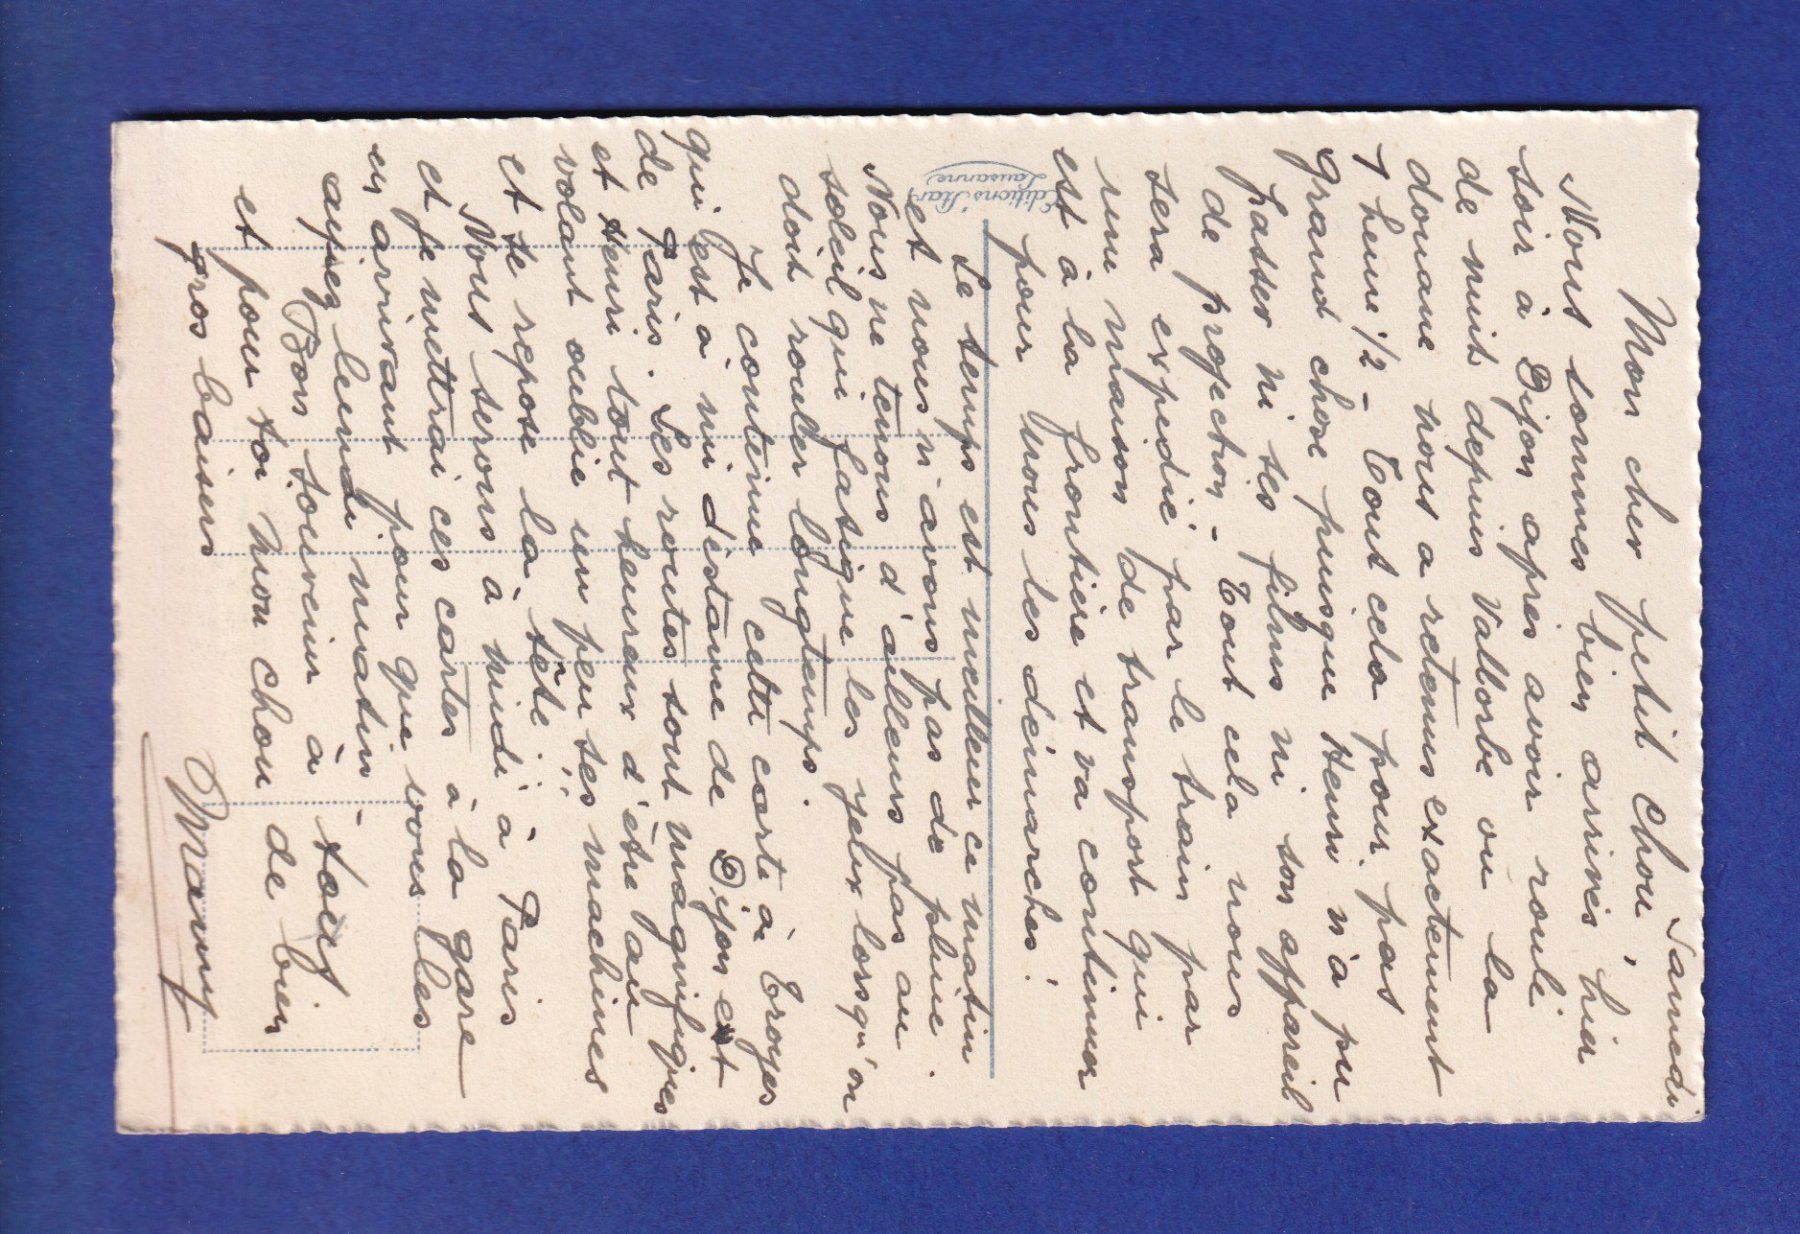 Samedi
Mon cher petit chou,
Nous sommes bien arrivés hier
soir à Dijon après avoir roulé
de nuit depuis Vallorbe où la
douane nous a retenus exactement
1 heure 1/2 - Tout cela pour pas
grand chose puisque Henri n'a pu
passer ni ses films ni son appareil
de projection - Tout cela nous
sera expédié par le train par
une maison de transport qui
est à la frontière et va continuer
pour nous les démarches.
Editions "Star"
Lausanne
Le temps est meilleur ce matin
et nous n'avons pas de pluie.
Nous ne tenons d'ailleurs pas au
soleil qui fatigue les yeux lorsqu'on
doit rouler longtemps.
Je continue cette carte à Troyes
qui est à mi distance de Dijon et
de Paris. Les routes sont magnifiques
et Henri tout heureux d'être au
volant oublie un peu ses machines
et se repose la tête !!
Nous serons à midi à Paris
et je mettrai ces cartes à la gare
en arrivant pour que vous les
ayiez lundi matin.
Bon souvenir à tous
et pour toi mon chou de bien
gros baisers
Mamy